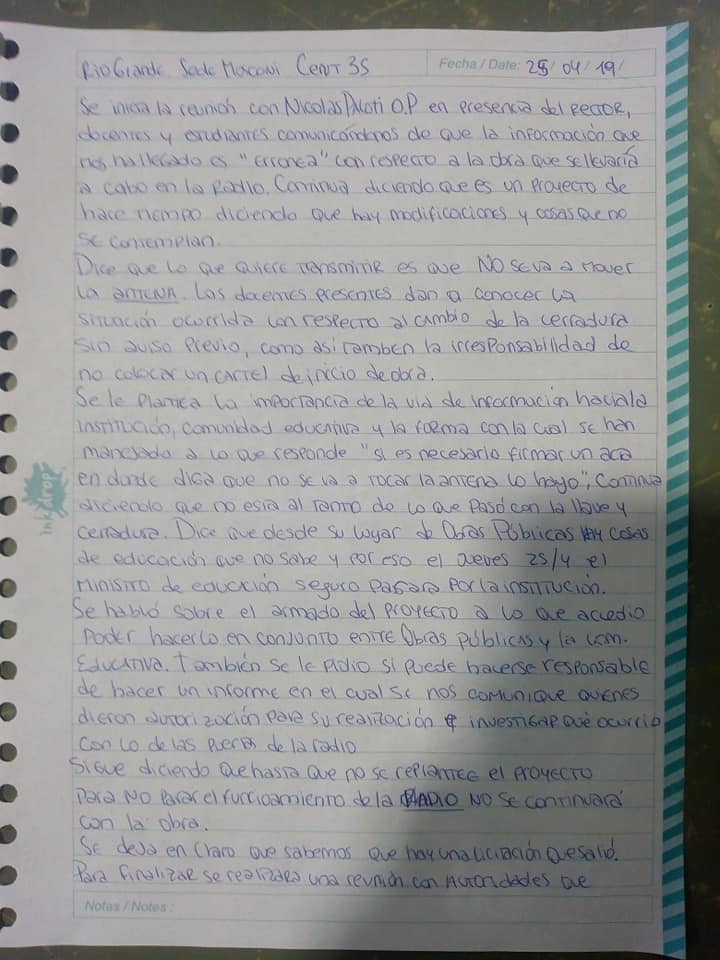 Rio Grande. Sede Mosconi Cent 35
Fecha / Date: 25/04/19/
Se inicia la reunión con Nicolas Piloti O.P en presencia del RECTOR,
docentes y estudiantes comunicándonos de que la información que
nos ha llegado es "erronea" con respecto a la obra que se llevaría
a cabo en la Radio. Continua diciendo que es un Proyecto de
hace tiempo diciendo que hay modificaciones y cosas que no
se contemplan.
Dice que lo que quiere TRANSMITIR es que NO se va a mover
la ANTENA. Los docentes presentes dan a conocer la
situación ocurrida con respecto al cambio de la cerradura
sin aviso Previo, como asi tambien la irresponsabilidad de
no colocar un CARTEL de inicio de obra.
Se le Plantea la importancia de la vía de información hacia la
institución, comunidad educativa y la forma con la cual se han
manejado a lo que responde "si es necesario firmar un acta
en donde diga que no se va a tocar la antena lo hago", Continua
diciendo que no esta al tanto de lo que pasó con la llave y
cerradura. Dice que desde su lugar de Obras Públicas hay cosas
de educación que no sabe y por eso el Jueves 25/4 el
MINISTRO de educación seguro Pasara Por la institución.
Se habló sobre el armado del PROYECTO a lo que accedio
Poder hacerlo en conjunto entre Obras públicas y la Com.
Educativa. También se le Pidio si puede hacerse responsable
de hacer un informe en el cual se nos comunique quienes
dieron autorización para su realización e investigar qué ocurrio
con lo de las puertas de la radio
Sigue diciendo que hasta que no se replantee el PROYECTO
Para NO Parar el funcioamiento de la RADIO NO se continuará
con la obra.
Se deja en claro que sabemos que hay una licitación que salió.
Para finalizar se realizara una reunión con Autoridades que
Notas / Notes :
ink drop